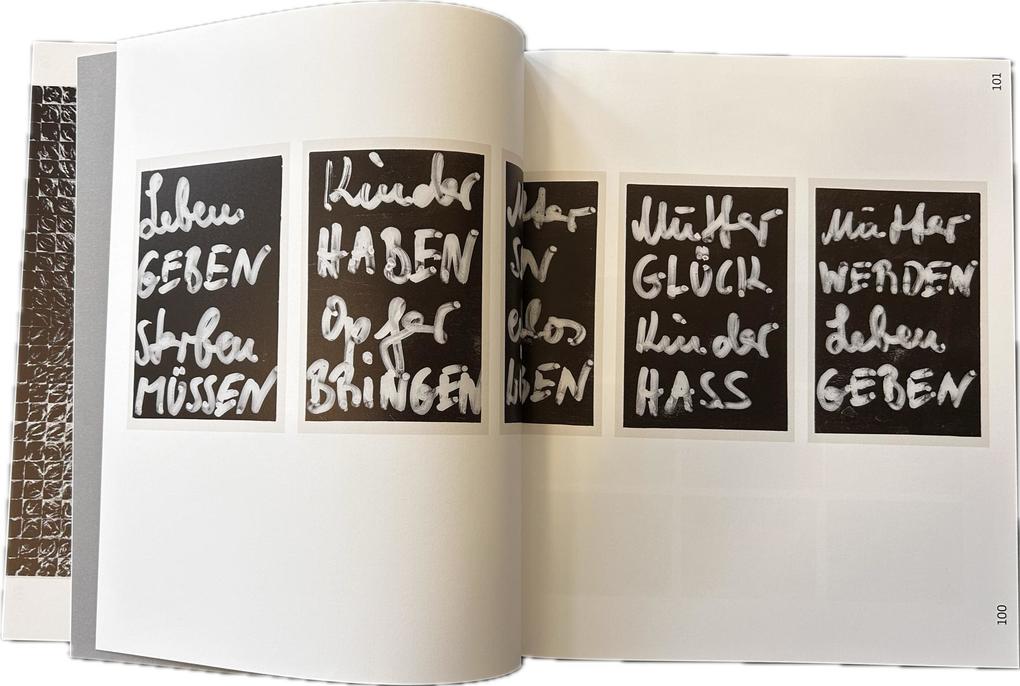 Leben
GEBEN
Sterben
MÜSSEN
Kinder
HABEN
Opfer
BRINGEN
Mütter
GLÜCK
Kinder
HASS
Mütter
WERDEN
Leben
GEBEN
101
100